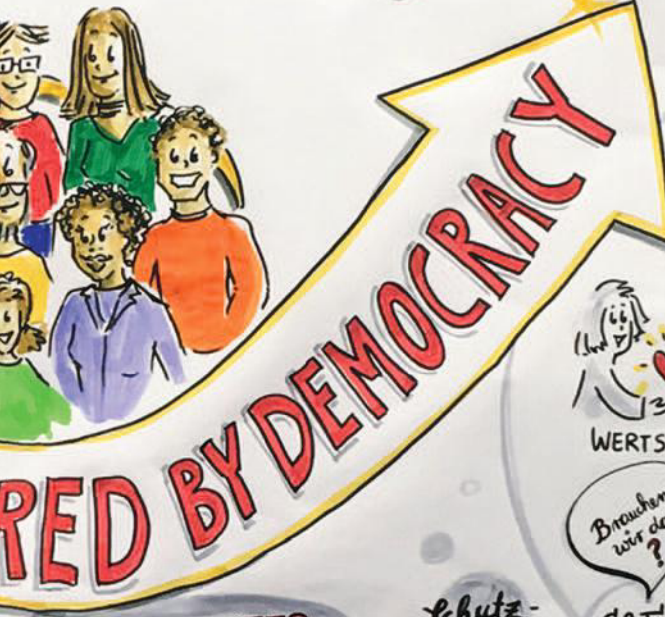 RED BY DEMOCRACY
WERTS
Brauche
wir da
?
Schutz-